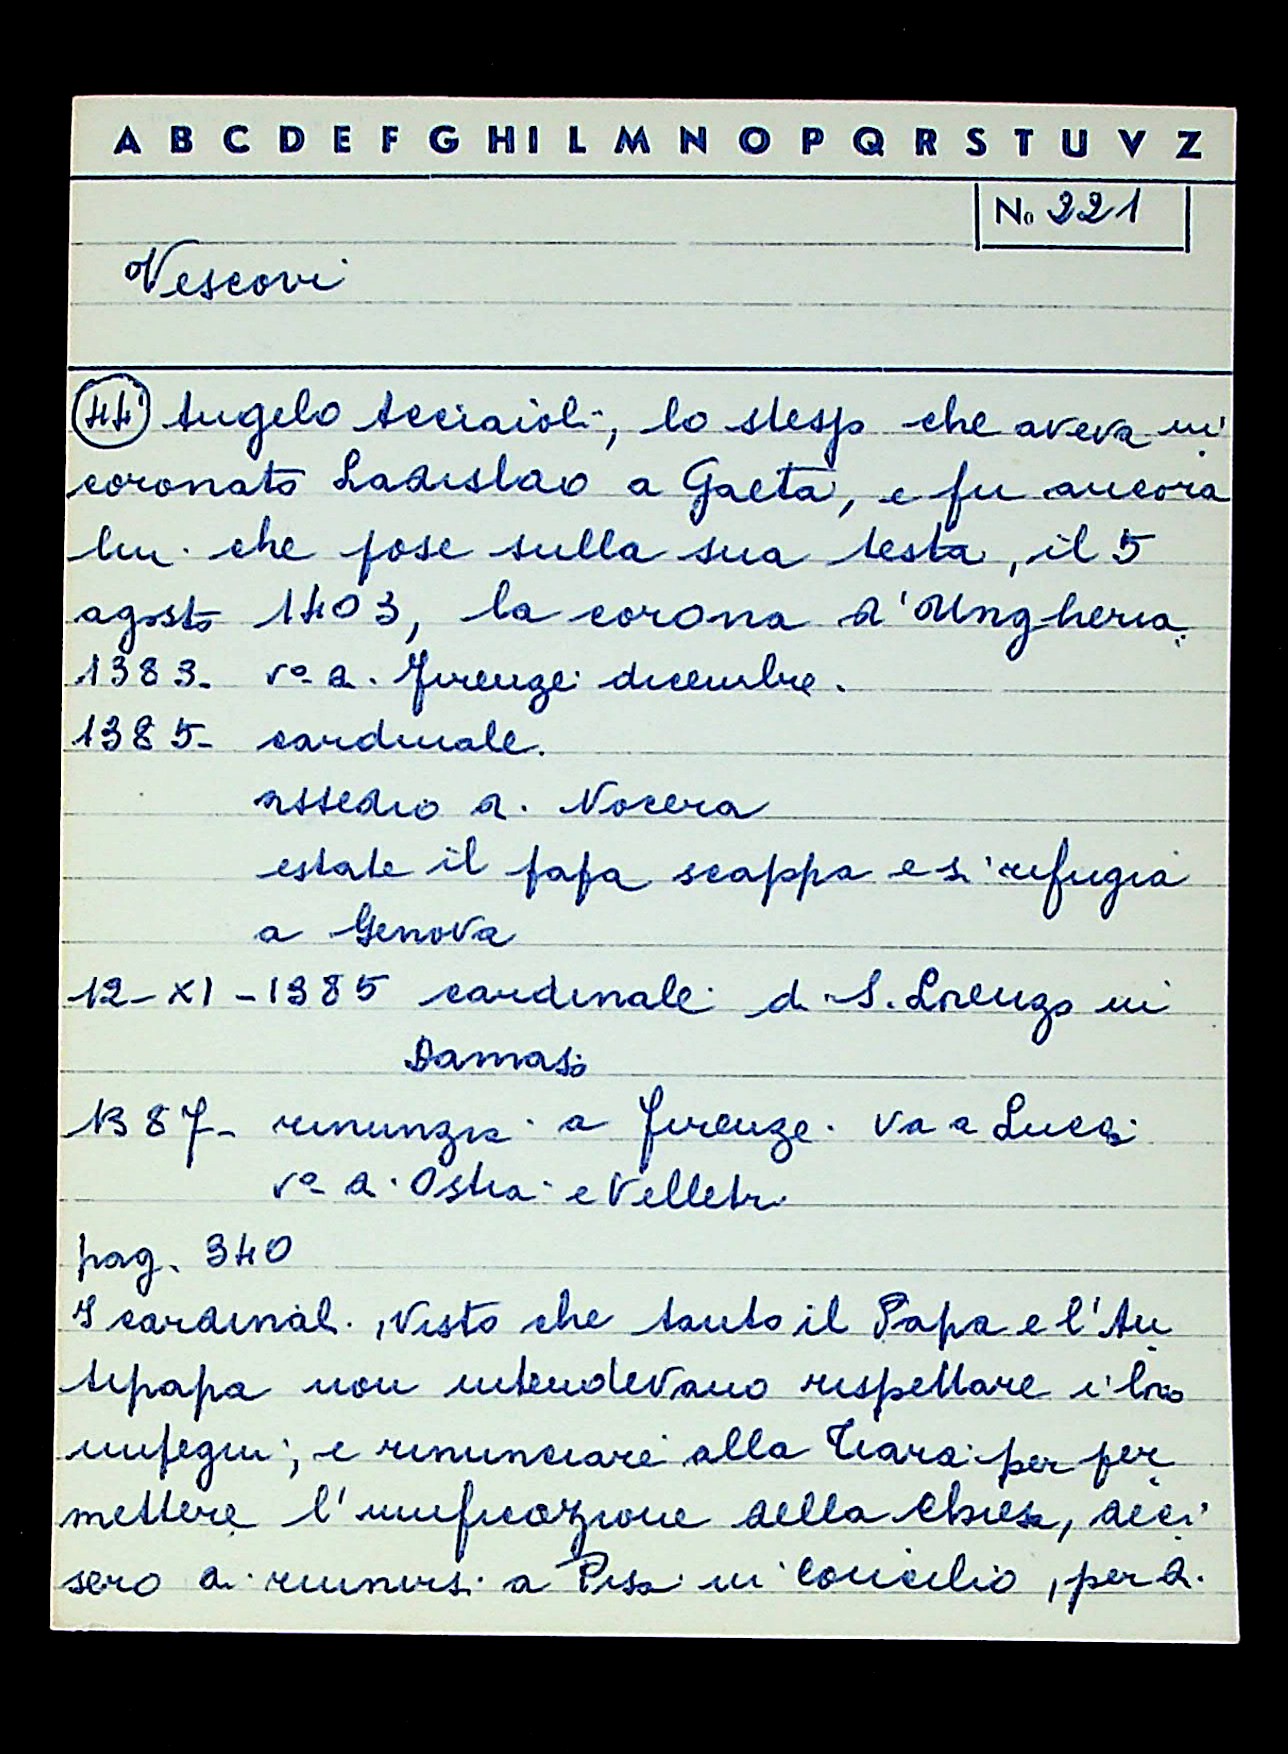 A B C D E F G H I L M N O P Q R S T U V Z
No 221
Vescovi
44 Angelo Acciaioli, lo stesso che aveva in
coronato Ladislao a Gaeta, e fu ancora
lui che pose sulla sua testa, il 5
agosto 1403, la corona d'Ungheria.
1383- vo di Firenze dicembre.
1385- cardinale.
assedio di Nocera
estate il papa scappa e si rifugia
a Genova
12-XI-1385 cardinale di S. Lorenzo in
Damaso
1387- rinunzia a Firenze. va a Lucca
vo di Ostia e Velletri
pag. 340
I cardinali, visto che tanto il Papa e l'An
tipapa non intendevano rispettare i loro
impegni, e rinunciare alla Tiara per per
mettere l'unificazione della Chiesa, deci
sero di riunirsi a Pisa in concilio, per di